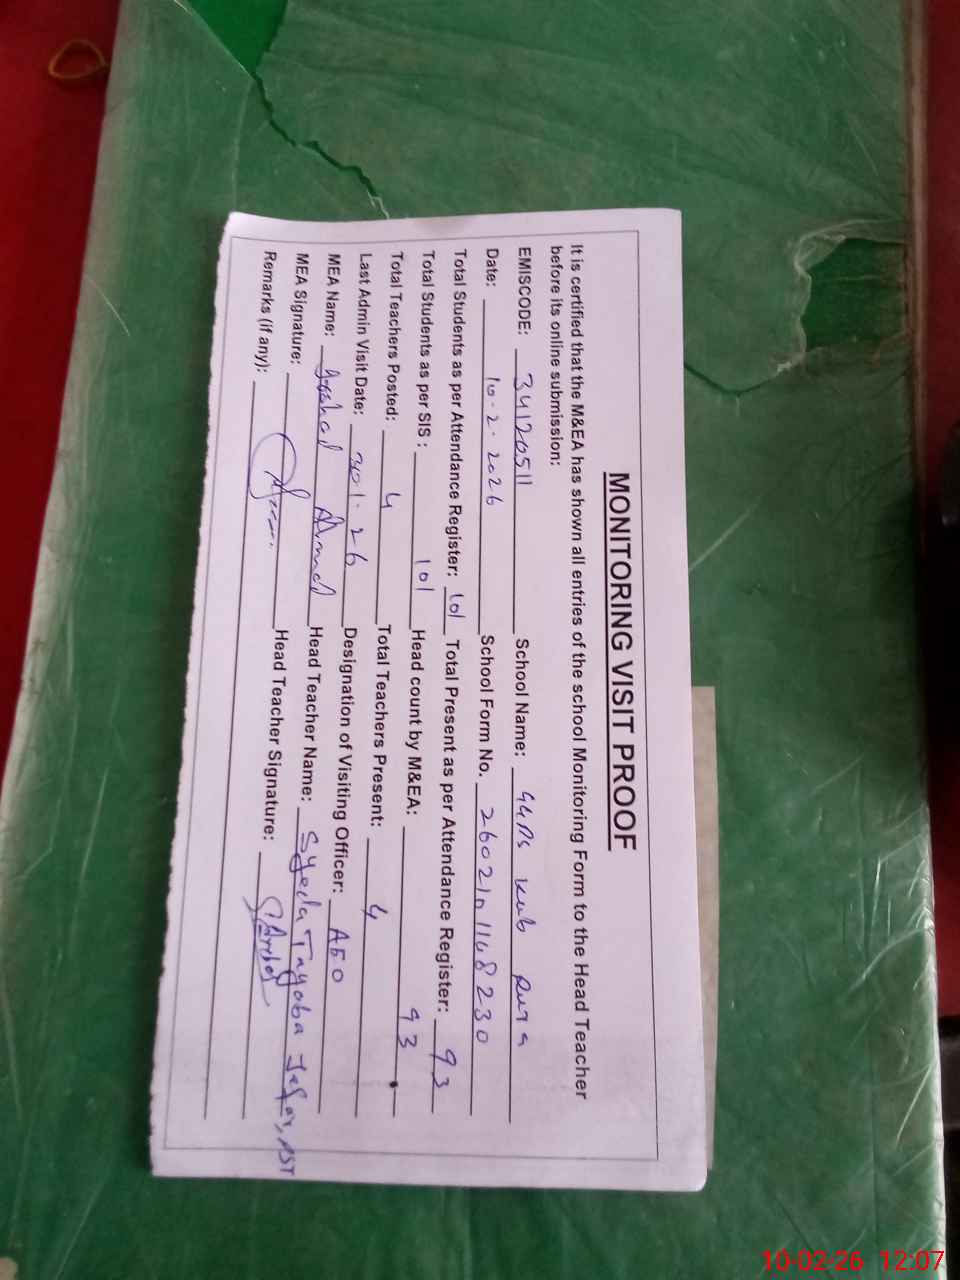 MONITORING VISIT PROOF
It is certified that the M&EA has shown all entries of the school Monitoring Form to the Head Teacher
before its online submission:
EMISCODE: 34120511 School Name: GGPS
Date: 10-2-2026 School Form No. 2602101168230
Total Students as per Attendance Register: 101 Total Present as per Attendance Register: 93
Total Students as per SIS : 101 Head count by M&EA: 93
Total Teachers Posted: 4 Total Teachers Present: 4
Last Admin Visit Date: Designation of Visiting Officer: AEO
MEA Name: Ahmed Head Teacher Name: Syeda Tayaba
MEA Signature: Head Teacher Signature:
Remarks (if any):
10-02-26 12:07